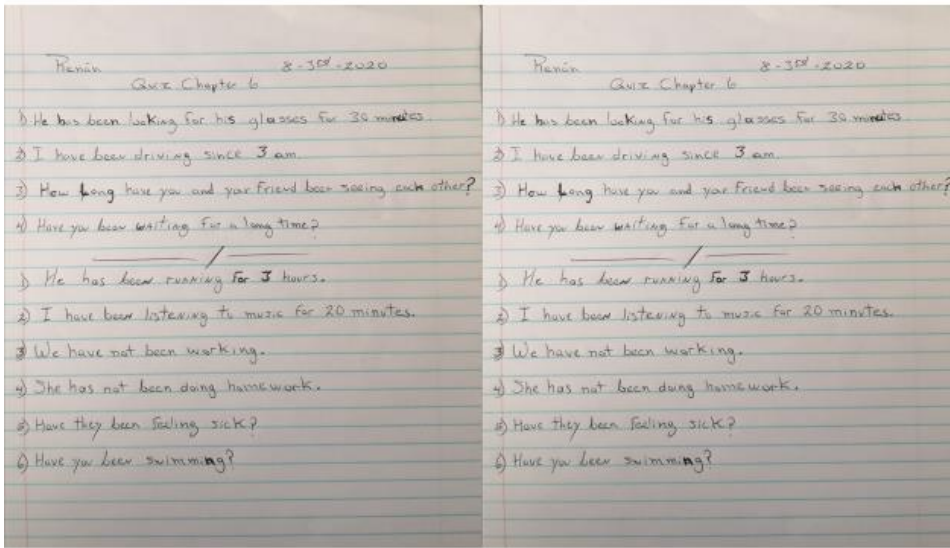 Renán 8-3rd-2020
Quiz Chapter 6
1) He has been looking for his glasses for 30 minutes.
2) I have been driving since 3 am.
3) How Long have you and your friend been seeing each other?
4) Have you been waiting for a long time?
1) He has been running for 3 hours.
2) I have been listening to music for 20 minutes.
3) We have not been working.
4) She has not been doing homework.
5) Have they been feeling sick?
6) Have you been swimming?
Renán 8-3rd-2020
Quiz Chapter 6
1) He has been looking for his glasses for 30 minutes.
2) I have been driving since 3 am.
3) How Long have you and your friend been seeing each other?
4) Have you been waiting for a long time?
1) He has been running for 3 hours.
2) I have been listening to music for 20 minutes.
3) We have not been working.
4) She has not been doing homework.
5) Have they been feeling sick?
6) Have you been swimming?